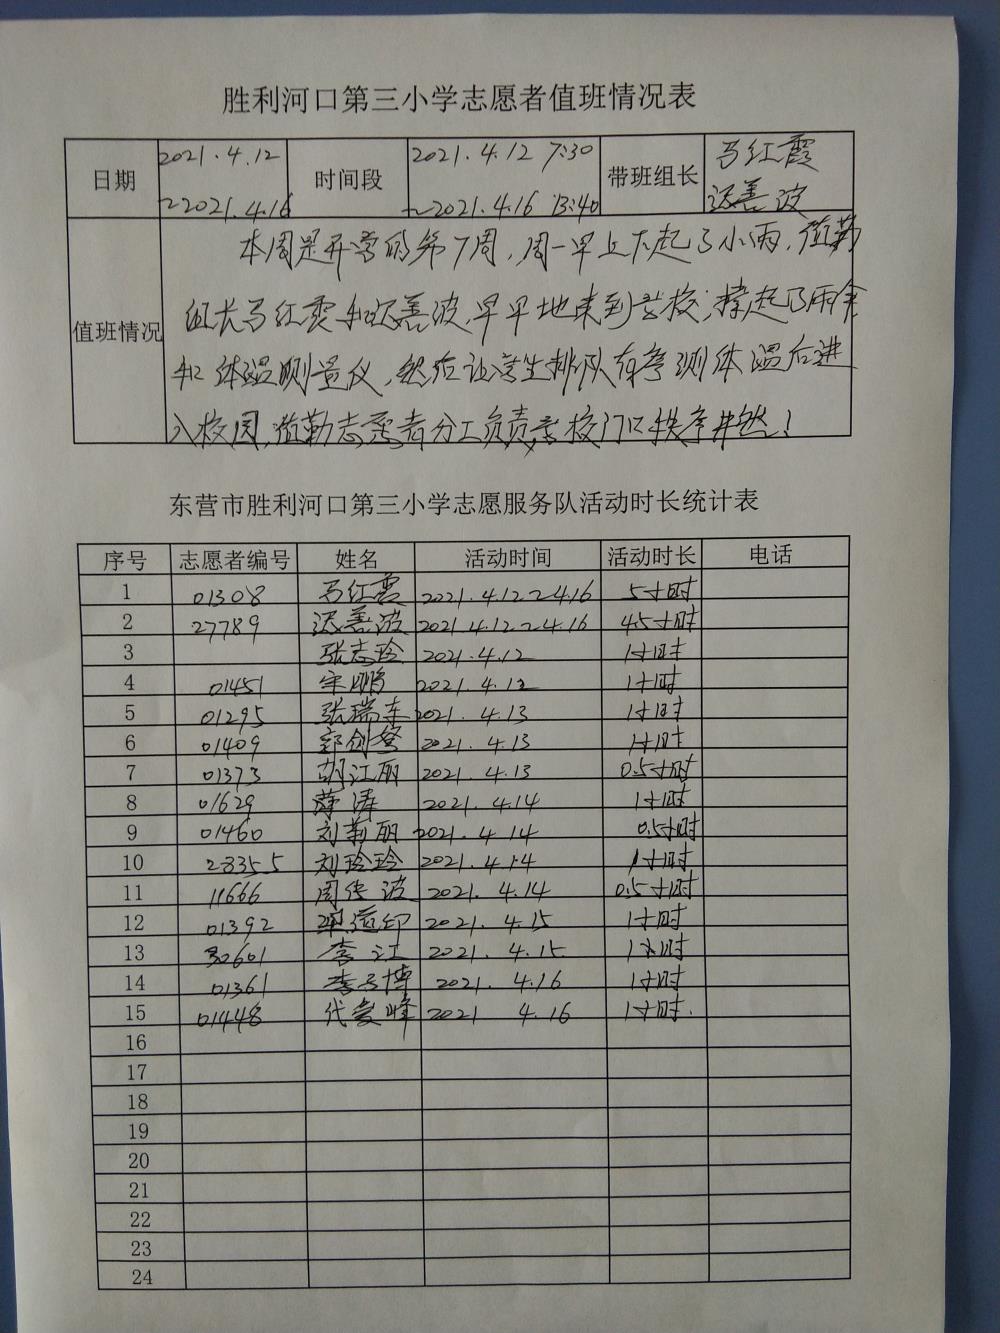 胜利河口第三小学志愿者值班情况表
日期 2021.4.12 ~2021.4.16 时间段 2021.4.12 7:30 ~2021.4.16 13:40 带班组长 马红霞 迟善波
值班情况
本周是开学的第7周,周一早上下起了小雨,值勤
组长马红霞和迟善波早早地来到学校,撑起了雨伞
和体温测量仪,然后让学生排队有序测体温后进
入校园,值勤志愿者分工负责学校门口秩序井然!
东营市胜利河口第三小学志愿服务队活动时长统计表
序号 志愿者编号 姓名 活动时间 活动时长 电话
1 01308 马红霞 2021.4.12~4.16 5小时
2 27789 迟善波 2021.4.12~4.16 4.5小时
3 张志玲 2021.4.12 1小时
4 01451 宋鹏 2021.4.12 1小时
5 01295 张瑞东 2021.4.13 1小时
6 01409 2021.4.13 1小时
7 01373 胡江丽 2021.4.13 0.5小时
8 01629 薛涛 2021.4.14 1小时
9 01460 刘莉丽 2021.4.14 0.5小时
10 28355 刘玲玲 2021.4.14 1小时
11 11666 周传波 2021.4.14 0.5小时
12 01392 2021.4.15 1小时
13 30601 李江 2021.4.15 1小时
14 01361 李子博 2021.4.16 1小时
15 01448 代爱峰 2021 4.16 1小时.
16
17
18
19
20
21
22
23
24